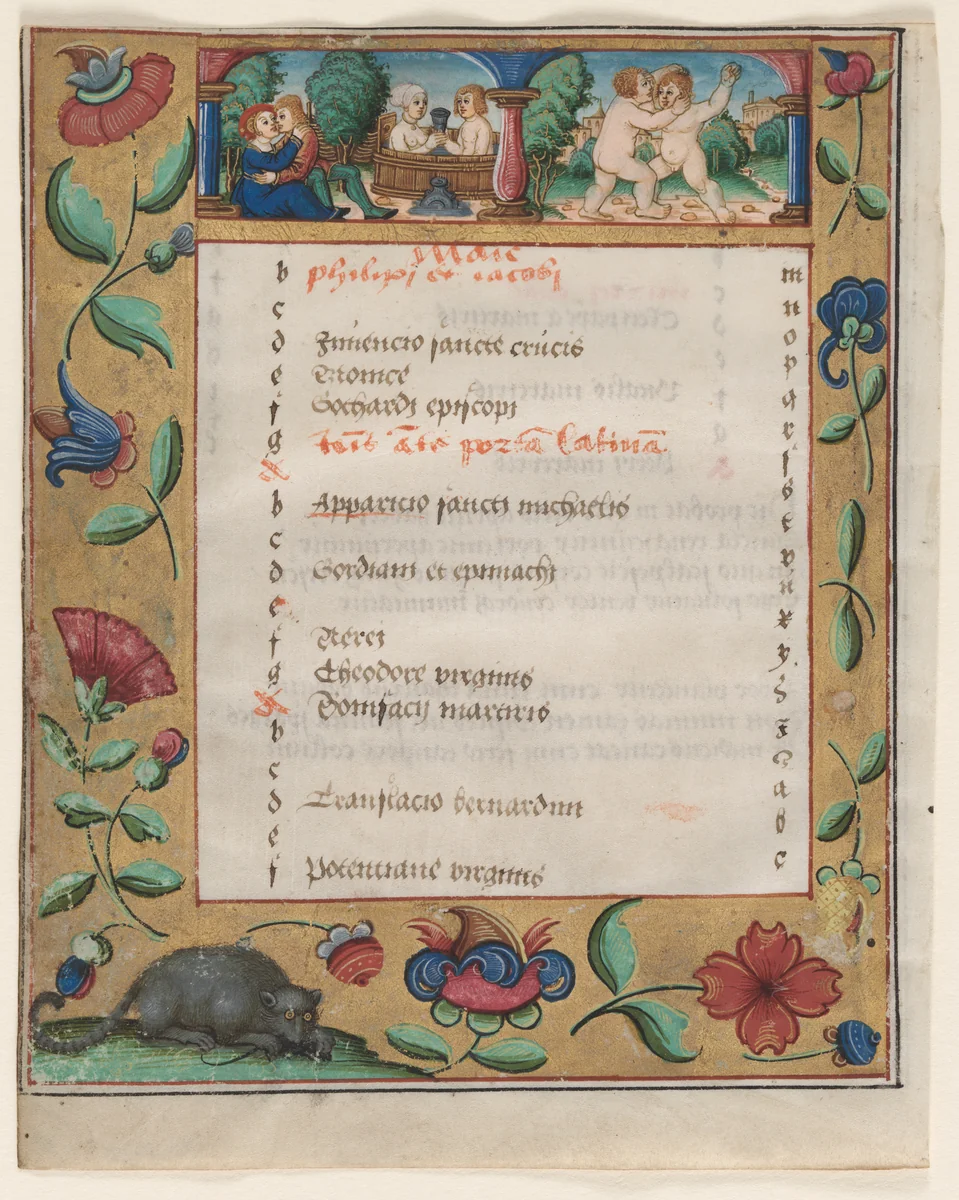 Maie
b philipi et iacobi m
c n
d Inuencio sancte crucis o
e p
f Gothardi episcopi q
g Iohis ante portā Latinā r
ſ
b Apparicio sancti michaelis s
c t
d Gordiani et epimachi v
e u
f Nerei x
g Theodore virginis y
Bonifacij martiris z
b
c
d Translacio bernardini a
e b
f Potentiane virginis c